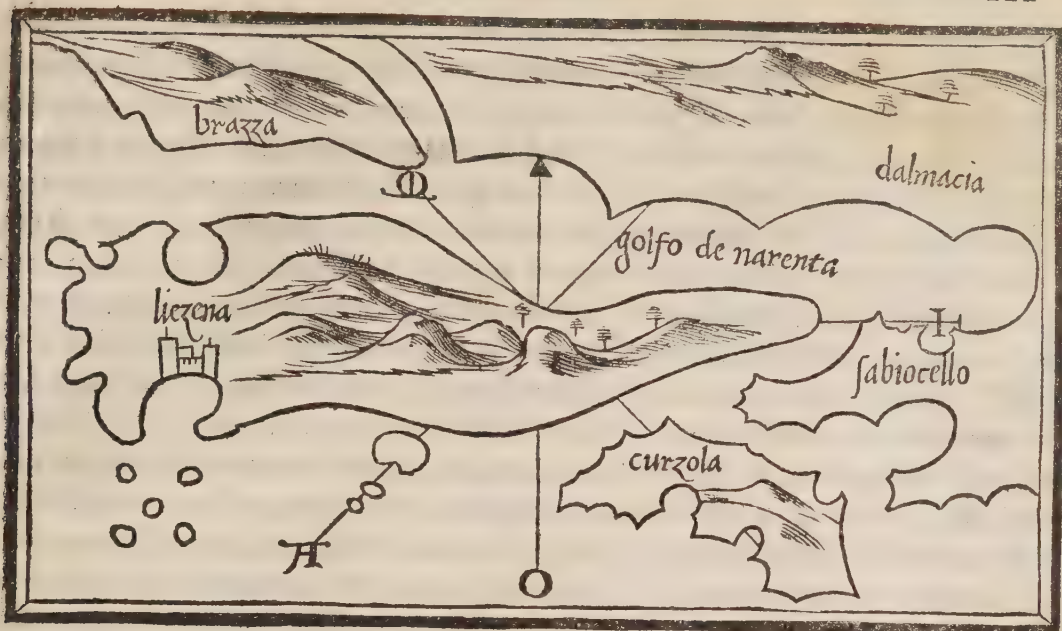 brazza
M
dalmacia
golfo de narenta
liezena
ſabiocello
curzola
A
O